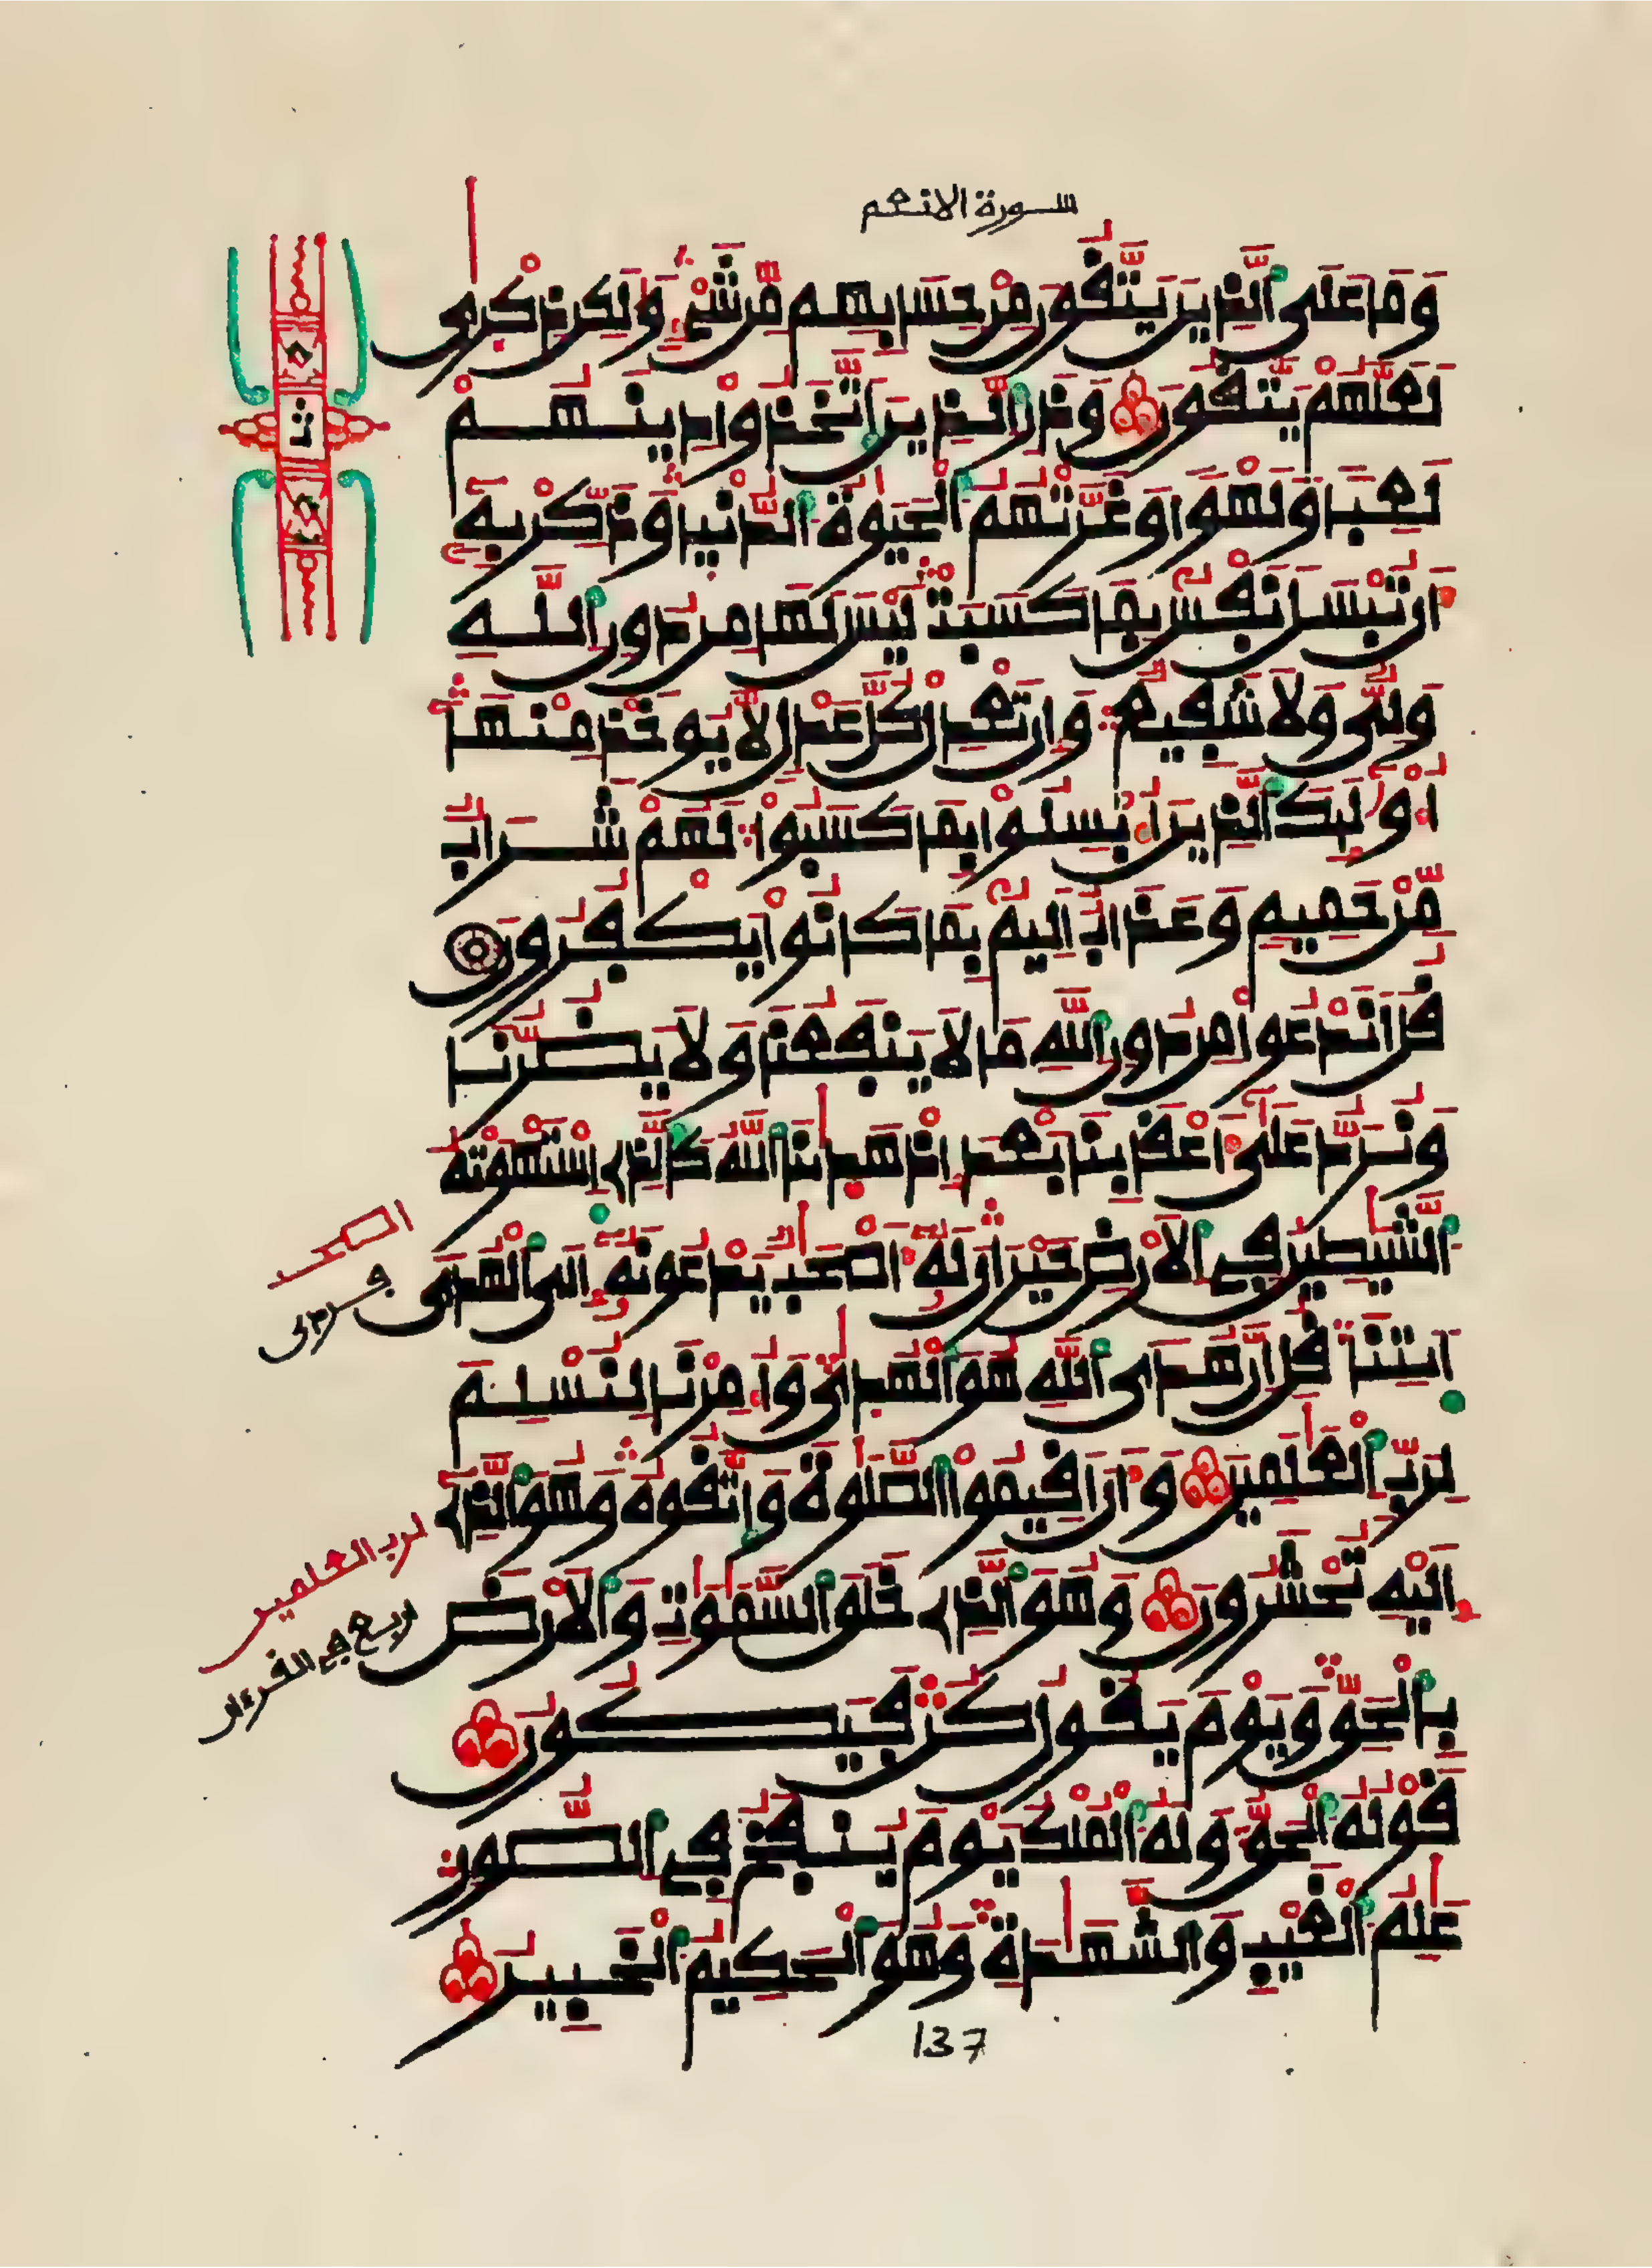 سورة الانعم
وَمَا عَلَى اَ۬لذِينَ يَتَّقُونَ مِنْ حِسَابِهِم مِّن شَيْءٖ وَلَٰكِن ذِكْر۪يٰ
لَعَلَّهُمْ يَتَّقُونَ وَذَرِ اِ۬لذِينَ اَ۪تَّخَذُواْ دِينَهُمْ
لَعِباٗ وَلَهْواٗ وَغَرَّتْهُمُ اُ۬لْحَيَوٰةُ اُ۬لدُّنْي۪ا وَذَكِّرْ بِهِۦٓ
أَن تُبْسَلَ نَفْسُۢ بِمَا كَسَبَتْ لَيْسَ لَهَا مِن دُونِ اِ۬للَّهِ
وَلِيّٞ وَلَا شَفِيعٞ وَإِن تَعْدِلْ كُلَّ عَدْلٖ لَّا يُوخَذْ مِنْهَآ
أُوْلَٰٓئِكَ اَ۬لذِينَ أُبْسِلُواْ بِمَا كَسَبُواْ لَهُمْ شَرَابٞ
مِّنْ حَمِيمٖ وَعَذَابٌ اَلِيمُۢ بِمَا كَانُواْ يَكْفُرُونَ
قُلَ اَنَدْعُواْ مِن دُونِ اِ۬للَّهِ مَا لَا يَنفَعُنَا وَلَا يَضُرُّنَا
وَنُرَدُّ عَلَىٰٓ أَعْقَٰبِنَا بَعْدَ إِذْ هَد۪يٰنَا اَ۬للَّهُ كَالذِے اِ۪سْتَهْوَتْهُ
اُ۬لشَّيَٰطِينُ فِے اِ۬لَارْضِ حَيْرَانَ لَهُۥٓ أَصْحَٰبٞ يَدْعُونَهُۥٓ إِلَى اَ۬لْهُدَى
اَ۪يتِنَا قُلِ اِنَّ هُدَى اَ۬للَّهِ هُوَ اَ۬لْهُد۪يٰ وَأُمِرْنَا لِنُسْلِمَ
لِرَبِّ اِ۬لْعَٰلَمِينَ وَأَنَ اَقِيمُواْ اُ۬لصَّلَوٰةَ وَاتَّقُوهُ وَهُوَ اَ۬لذِےٓ
إِلَيْهِ تُحْشَرُونَ وَهُوَ اَ۬لذِے خَلَقَ اَ۬لسَّمَٰوَٰتِ وَالَارْضَ
بِالْحَقِّ وَيَوْمَ يَقُولُ كُن فَيَكُونُ
قَوْلُهُ اُ۬لْحَقُّ وَلَهُ اُ۬لْمُلْكُ يَوْمَ يُنفَخُ فِے اِ۬لصُّورِ
عَٰلِمُ اُ۬لْغَيْبِ وَالشَّهَٰدَةِ وَهُوَ اَ۬لْحَكِيمُ اُ۬لْخَبِيرُ
لرب العلمين
ربع في القرءان
137